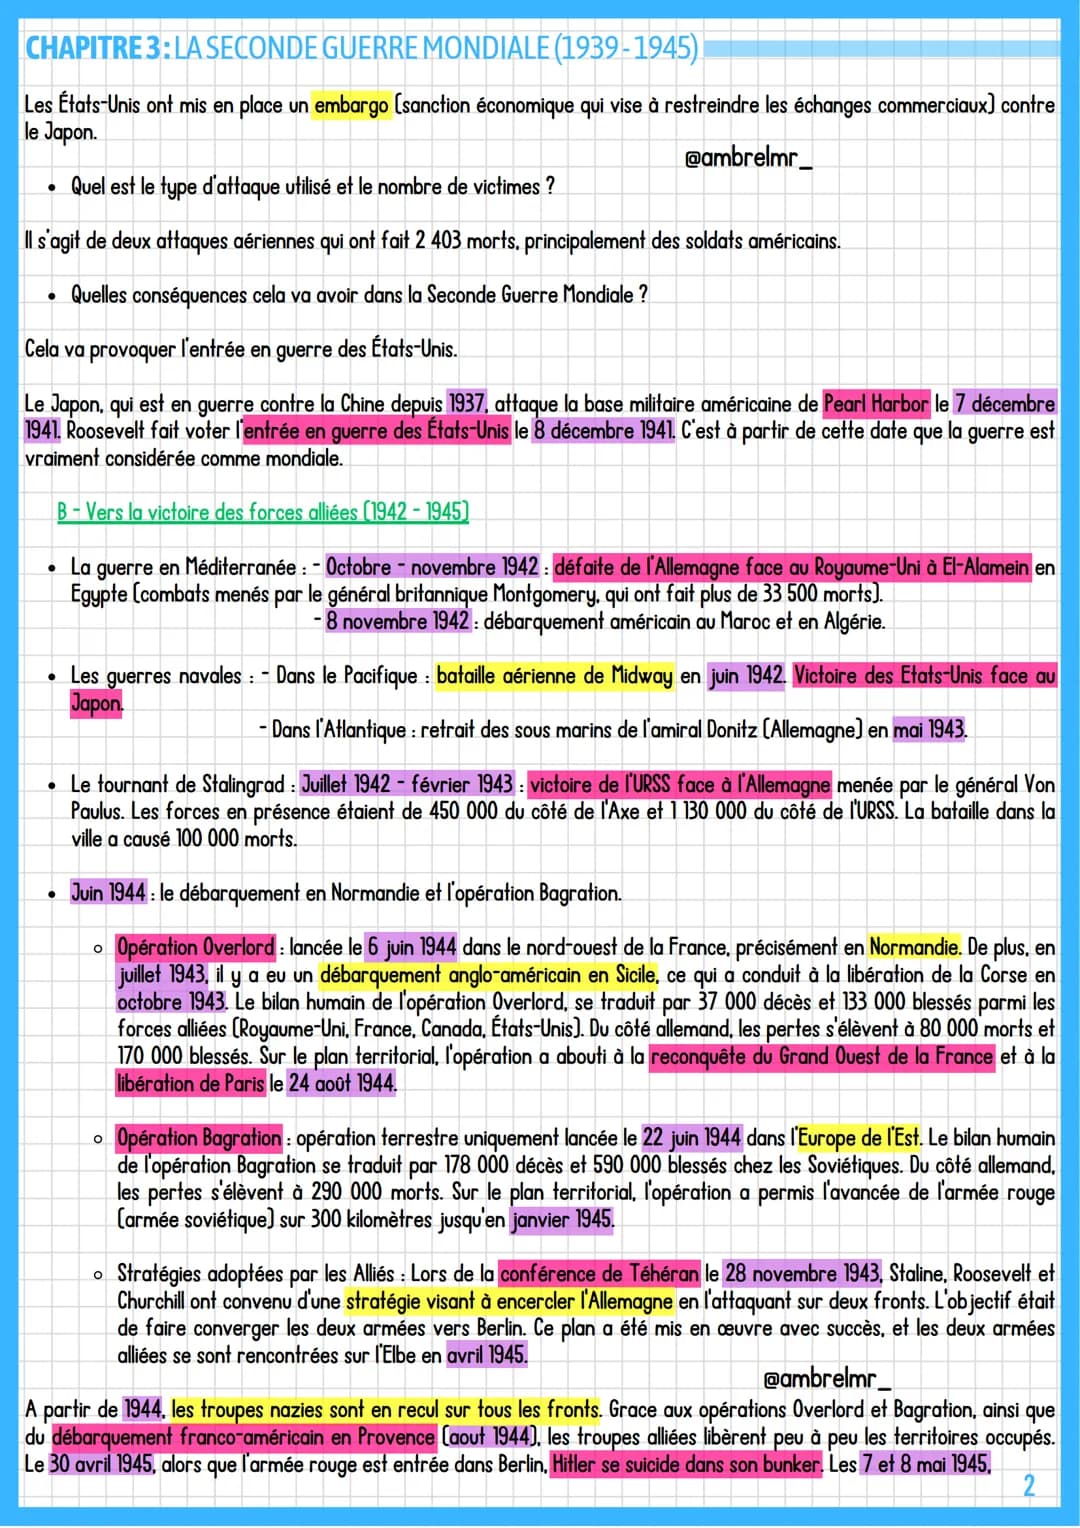 CHAPITRE 3 : LA SECONDE GUERRE MONDIALE (1939 - 1945)
Les États-Unis ont mis en place un embargo (sanction économique qui vise à restreindre les échanges commerciaux) contre
le Japon.
@ambrelmr_
• Quel est le type d'attaque utilisé et le nombre de victimes ?
Il s'agit de deux attaques aériennes qui ont fait 2 403 morts, principalement des soldats américains.
• Quelles conséquences cela va avoir dans la Seconde Guerre Mondiale ?
Cela va provoquer l'entrée en guerre des États-Unis.
Le Japon, qui est en guerre contre la Chine depuis 1937, attaque la base militaire américaine de Pearl Harbor le 7 décembre
1941. Roosevelt fait voter l'entrée en guerre des États-Unis le 8 décembre 1941. C'est à partir de cette date que la guerre est
vraiment considérée comme mondiale.
B - Vers la victoire des forces alliées (1942 - 1945)
• La guerre en Méditerranée : - Octobre - novembre 1942 : défaite de l'Allemagne face au Royaume-Uni à El-Alamein en
Egypte (combats menés par le général britannique Montgomery, qui ont fait plus de 33 500 morts).
- 8 novembre 1942 : débarquement américain au Maroc et en Algérie.
• Les guerres navales : - Dans le Pacifique : bataille aérienne de Midway en juin 1942. Victoire des Etats-Unis face au
Japon.
- Dans l'Atlantique : retrait des sous marins de l'amiral Donitz (Allemagne) en mai 1943.
• Le tournant de Stalingrad : Juillet 1942 - février 1943 : victoire de l'URSS face à l'Allemagne menée par le général Von
Paulus. Les forces en présence étaient de 450 000 du côté de l'Axe et 1 130 000 du côté de l'URSS. La bataille dans la
ville a causé 100 000 morts.
• Juin 1944 : le débarquement en Normandie et l'opération Bagration.
○ Opération Overlord : lancée le 6 juin 1944 dans le nord-ouest de la France, précisément en Normandie. De plus, en
juillet 1943, il y a eu un débarquement anglo-américain en Sicile, ce qui a conduit à la libération de la Corse en
octobre 1943. Le bilan humain de l'opération Overlord, se traduit par 37 000 décès et 133 000 blessés parmi les
forces alliées (Royaume-Uni, France, Canada, États-Unis). Du côté allemand, les pertes s'élèvent à 80 000 morts et
170 000 blessés. Sur le plan territorial, l'opération a abouti à la reconquête du Grand Ouest de la France et à la
libération de Paris le 24 août 1944.
○ Opération Bagration : opération terrestre uniquement lancée le 22 juin 1944 dans l'Europe de l'Est. Le bilan humain
de l'opération Bagration se traduit par 178 000 décès et 590 000 blessés chez les Soviétiques. Du côté allemand,
les pertes s'élèvent à 290 000 morts. Sur le plan territorial, l'opération a permis l'avancée de l'armée rouge
(armée soviétique) sur 300 kilomètres jusqu'en janvier 1945.
○ Stratégies adoptées par les Alliés : Lors de la conférence de Téhéran le 28 novembre 1943, Staline, Roosevelt et
Churchill ont convenu d'une stratégie visant à encercler l'Allemagne en l'attaquant sur deux fronts. L'objectif était
de faire converger les deux armées vers Berlin. Ce plan a été mis en œuvre avec succès, et les deux armées
alliées se sont rencontrées sur l'Elbe en avril 1945.
@ambrelmr_
A partir de 1944, les troupes nazies sont en recul sur tous les fronts. Grace aux opérations Overlord et Bagration, ainsi que
du débarquement franco-américain en Provence (aout 1944), les troupes alliées libèrent peu à peu les territoires occupés.
Le 30 avril 1945, alors que l'armée rouge est entrée dans Berlin, Hitler se suicide dans son bunker. Les 7 et 8 mai 1945,
2